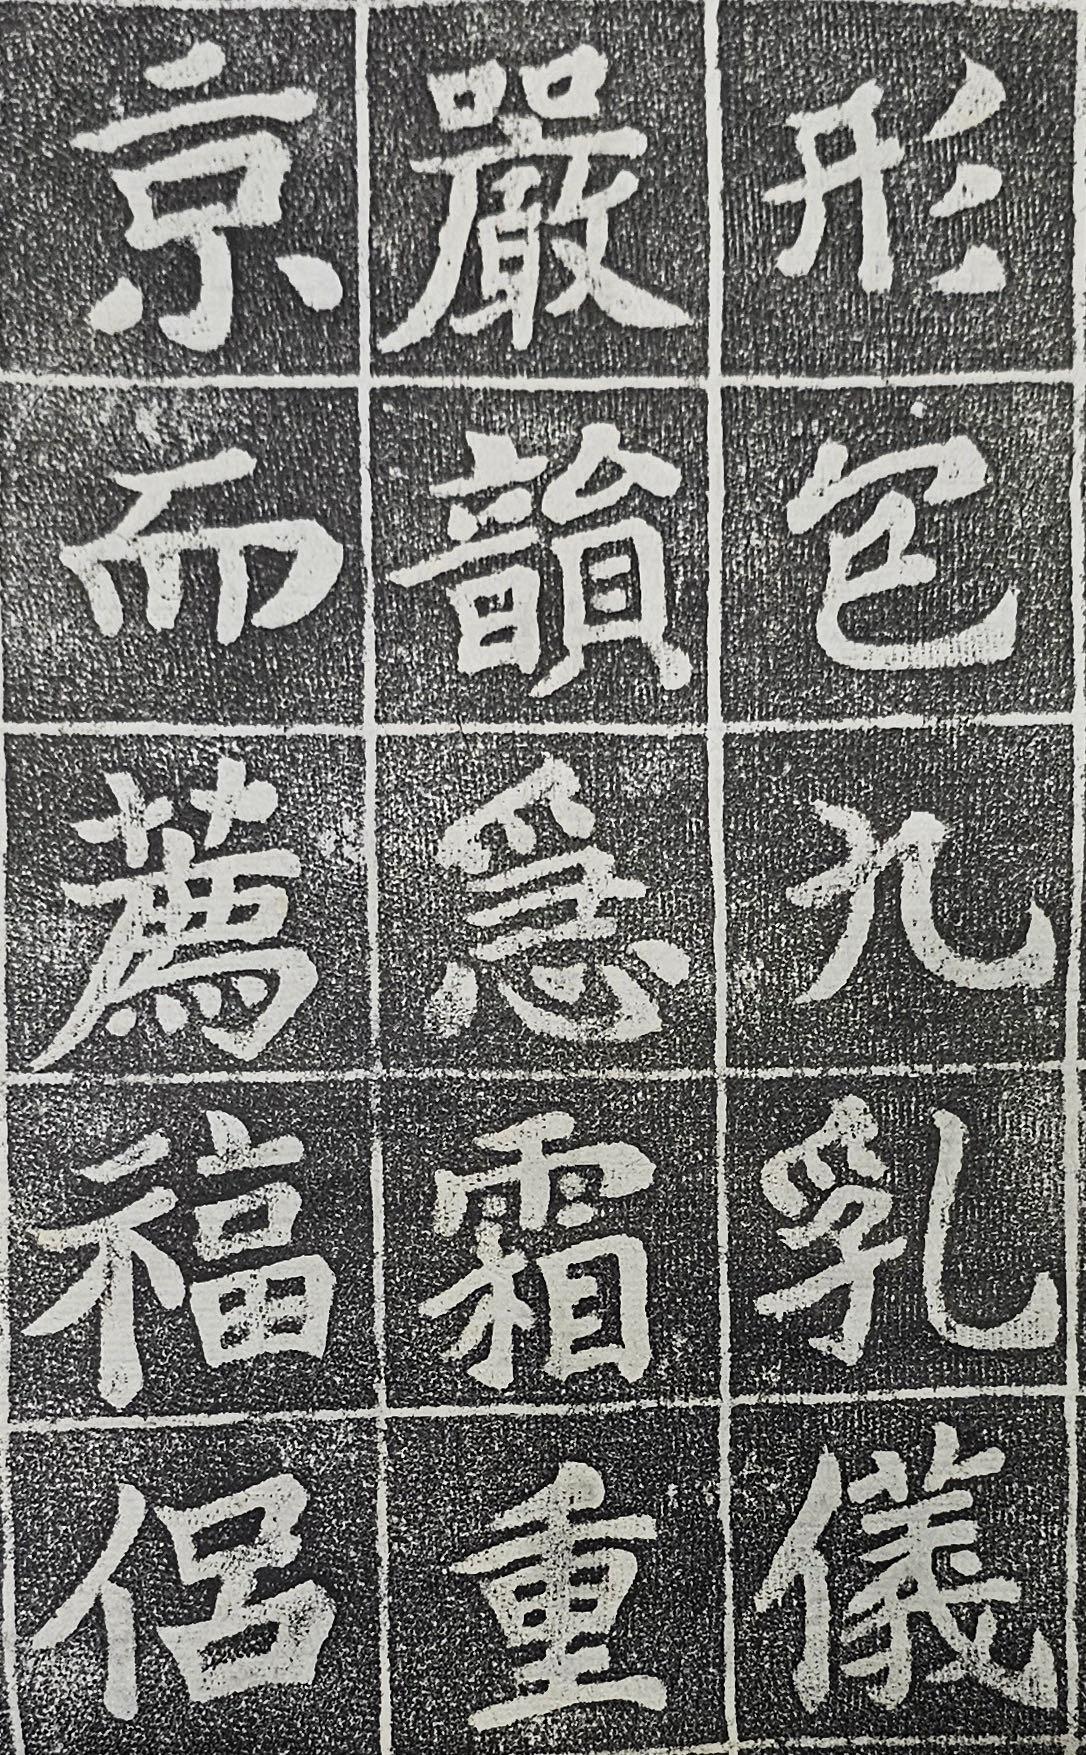 形包九乳儀
嚴韻急霜重
京而薦福侶